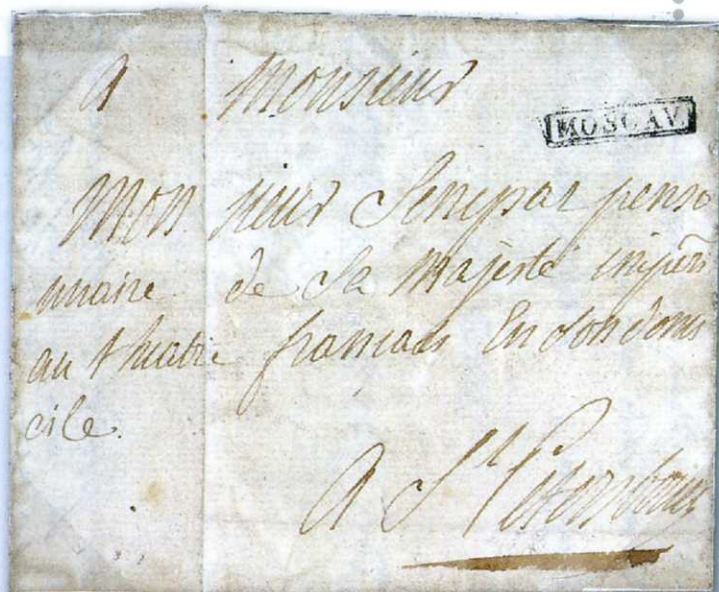 A Monsieur
MOSCAV
Monsieur Senepar penso
nnaire de Sa Majesté imperi
au thiatre francais En son domi
cile.
A St Petersbourg